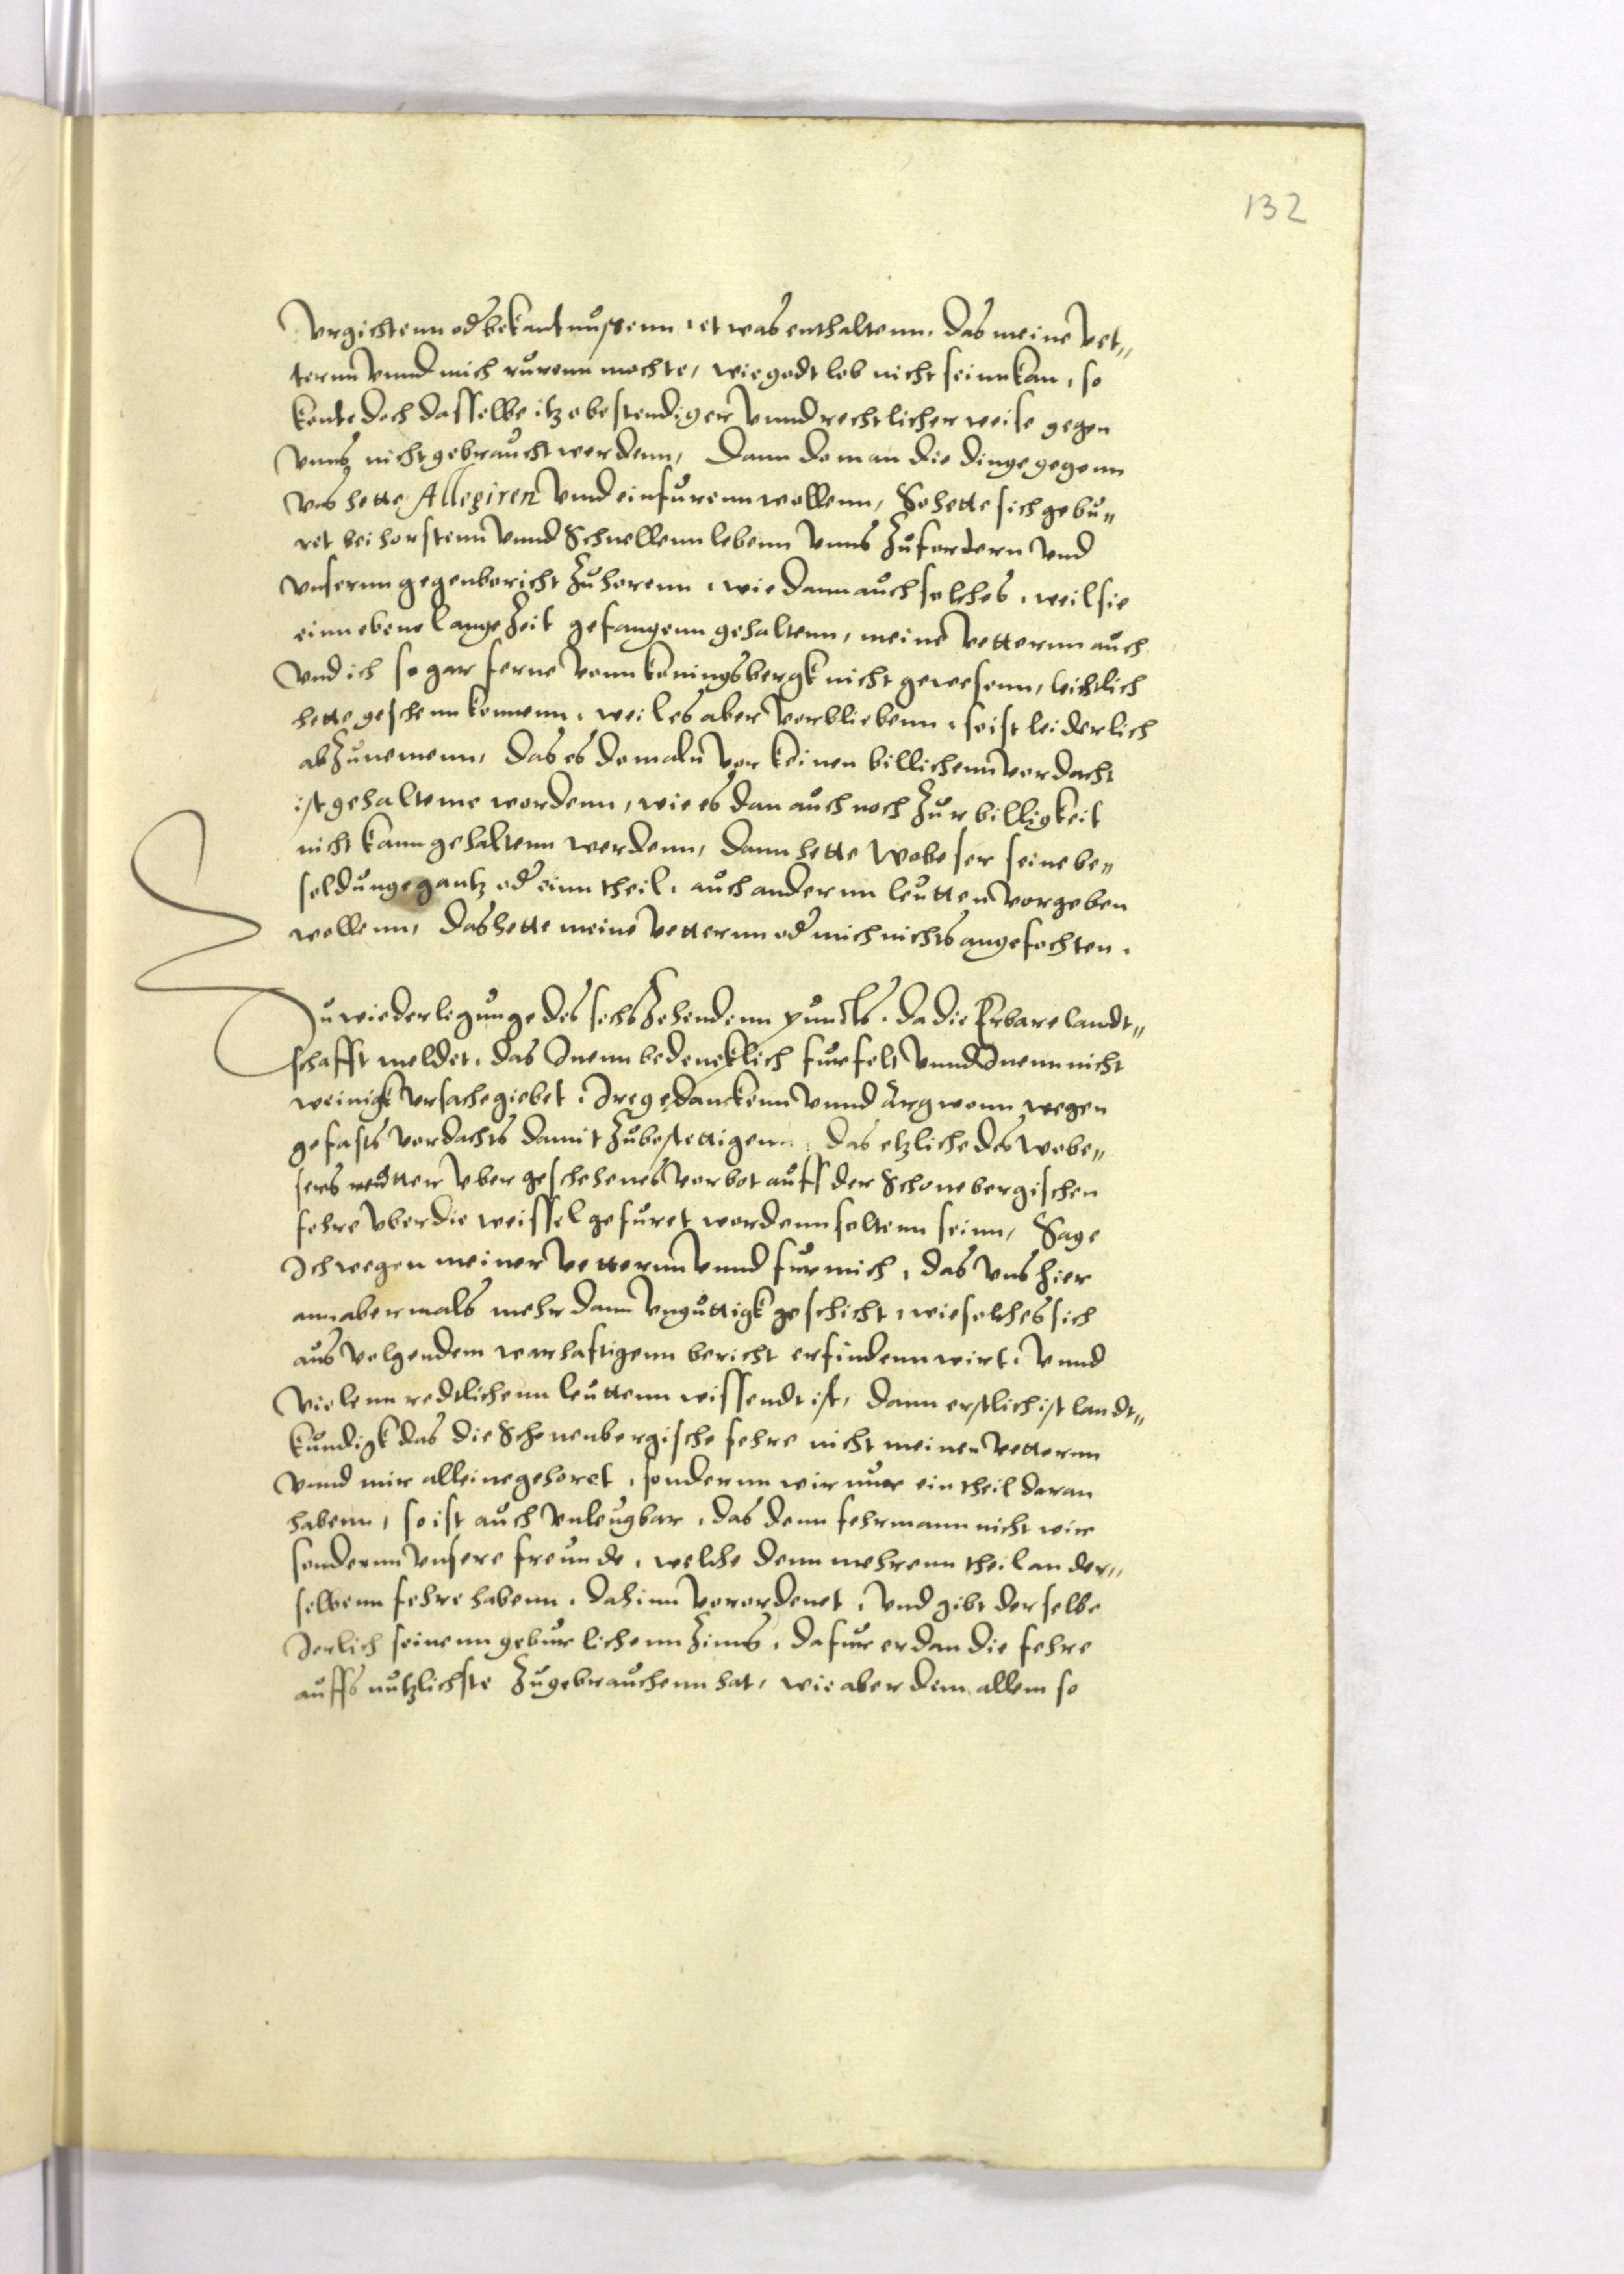 132
Vrgichtenn od bekantnussenn, etwas enthaltenn, das meine Vet„
ternn vnnd mich rurenn mochte, wie godt lob nicht seinn kan, so
konte doch dasselbe itzo bestendiger vnnd rechtlicher weise gegen
vnns nicht gebraucht werdenn, Dann do man die dinge gegenn
vns hette Allegiren vnnd einfurenn wollenn, So hette sich gebu„
ret bei horstenn vnnd Schnellenn lebenn vnns zufordern vnd
vnsernn gegenbericht zuhorenn, wie dann auch solches, weil sie
einn ebene lange Zeit gefangenn gehaltenn, meine Vetternn auch
vnd ich so gar ferne vonn koningsbergk nicht gewesenn, leichtlich
hette geschenn konnenn, weil es aber vorbliebenn, so ist leiderlich
abzunemenn, das es domaln vor keinen billichenn vordacht
ist gehaltenne wordenn, wie es dan auch noch zur billigkeit
nicht kann gehaltenn werdenn, Dann hette Wobeser seine be„
soldunge gantz od einn theil, auch andernn leutten vorgeben
wollenn, das hette meine Vetternn od mich nichts angefochten.
Zu wiederlegunge des sechszehendenn puncts, da die Erbare landt„
schafft meldet, das Inenn bedencklich furfelt vnnd Inenn nicht
weinigk vrsache giebet, Ire gedanckenn vnnd Argwonn wegen
gefasts vordachts damit zubestettigenn, das etzliche des Wobe„
sers reutter vber geschehenes vorbot auff der Schonebergischen
fehre vber die weissel gefuret wordenn soltenn seinn, Sage
Ich wegen meiner Vetternn vnnd fur mich, das vns hier
ann abermals mehr dann vnguttigk geschicht, wie solches sich
aus volgendem warhaftigenn bericht erfindenn wirt, vnnd
vielenn redtlichenn leuttenn wissendt ist, Dann erstlich ist landt„
kundigk das die Schonenbergische fehre nicht meinen Vetternn
vnnd mir alleine gehoret, sondernn wir nur ein theil daran
habenn, so ist auch vnleugbar, das denn fehrmann nicht wir
sondernn vnsere freunde, welche denn mehrenn theil an der„
selbenn fehre habenn, dahinn verordenet, vnd gibt derselbe
Jerlich seinenn geburlichenn Zinns, dafur er dan die fehre
auffs nutzlichste zugebrauchenn hat, wie aber dem allem so